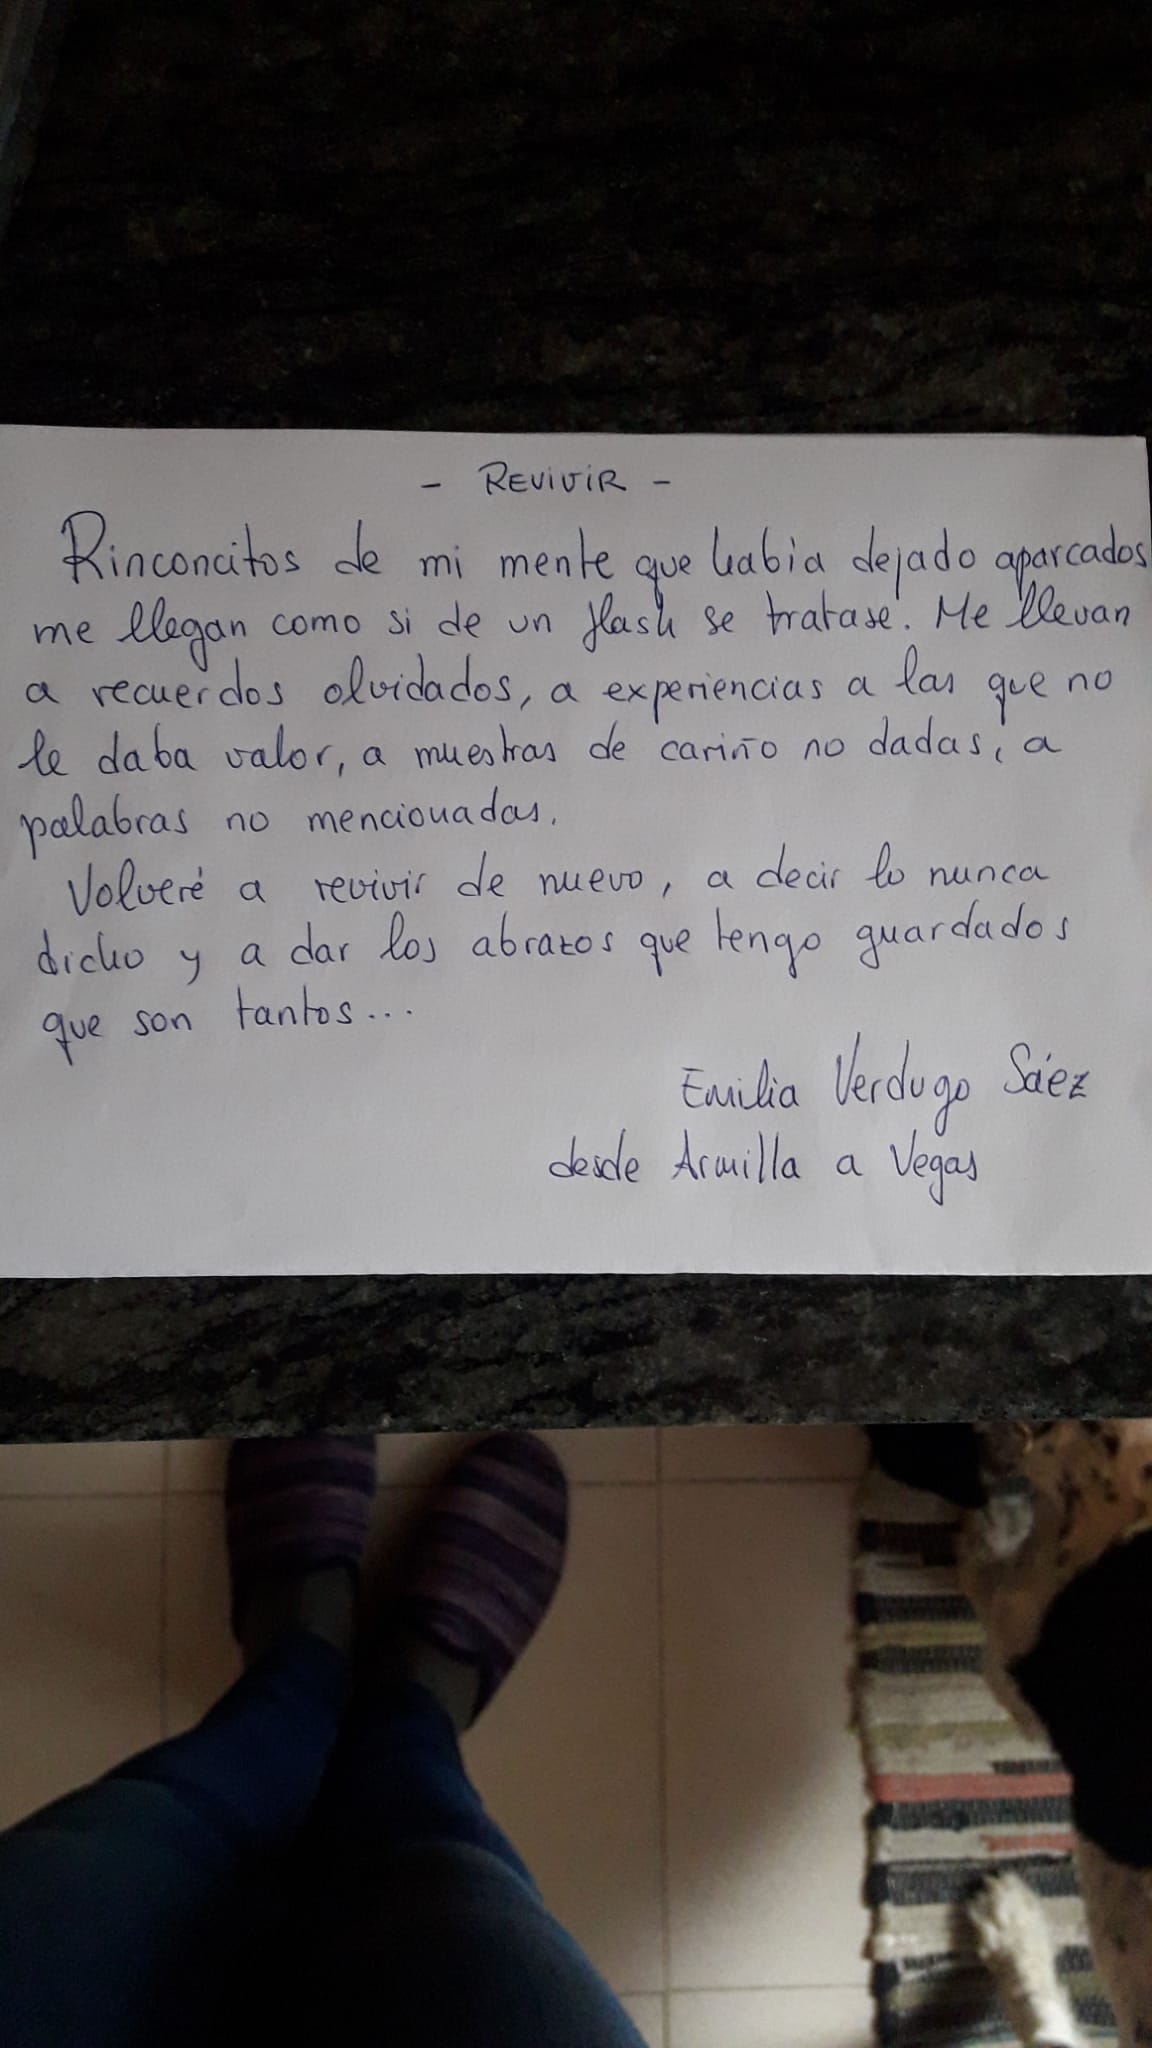 - REVIVIR -
Rinconcitos de mi mente que habia dejado aparcados
me llegan como si de un flash se tratase. Me llevan
a recuerdos olvidados, a experiencias a las que no
le daba valor, a muestras de cariño no dadas, a
palabras no mencionadas.
Volveré a revivir de nuevo, a decir lo nunca
dicho y a dar los abrazos que tengo guardados
que son tantos...
Emilia Verdugo Sáez
desde Armilla a Vegas